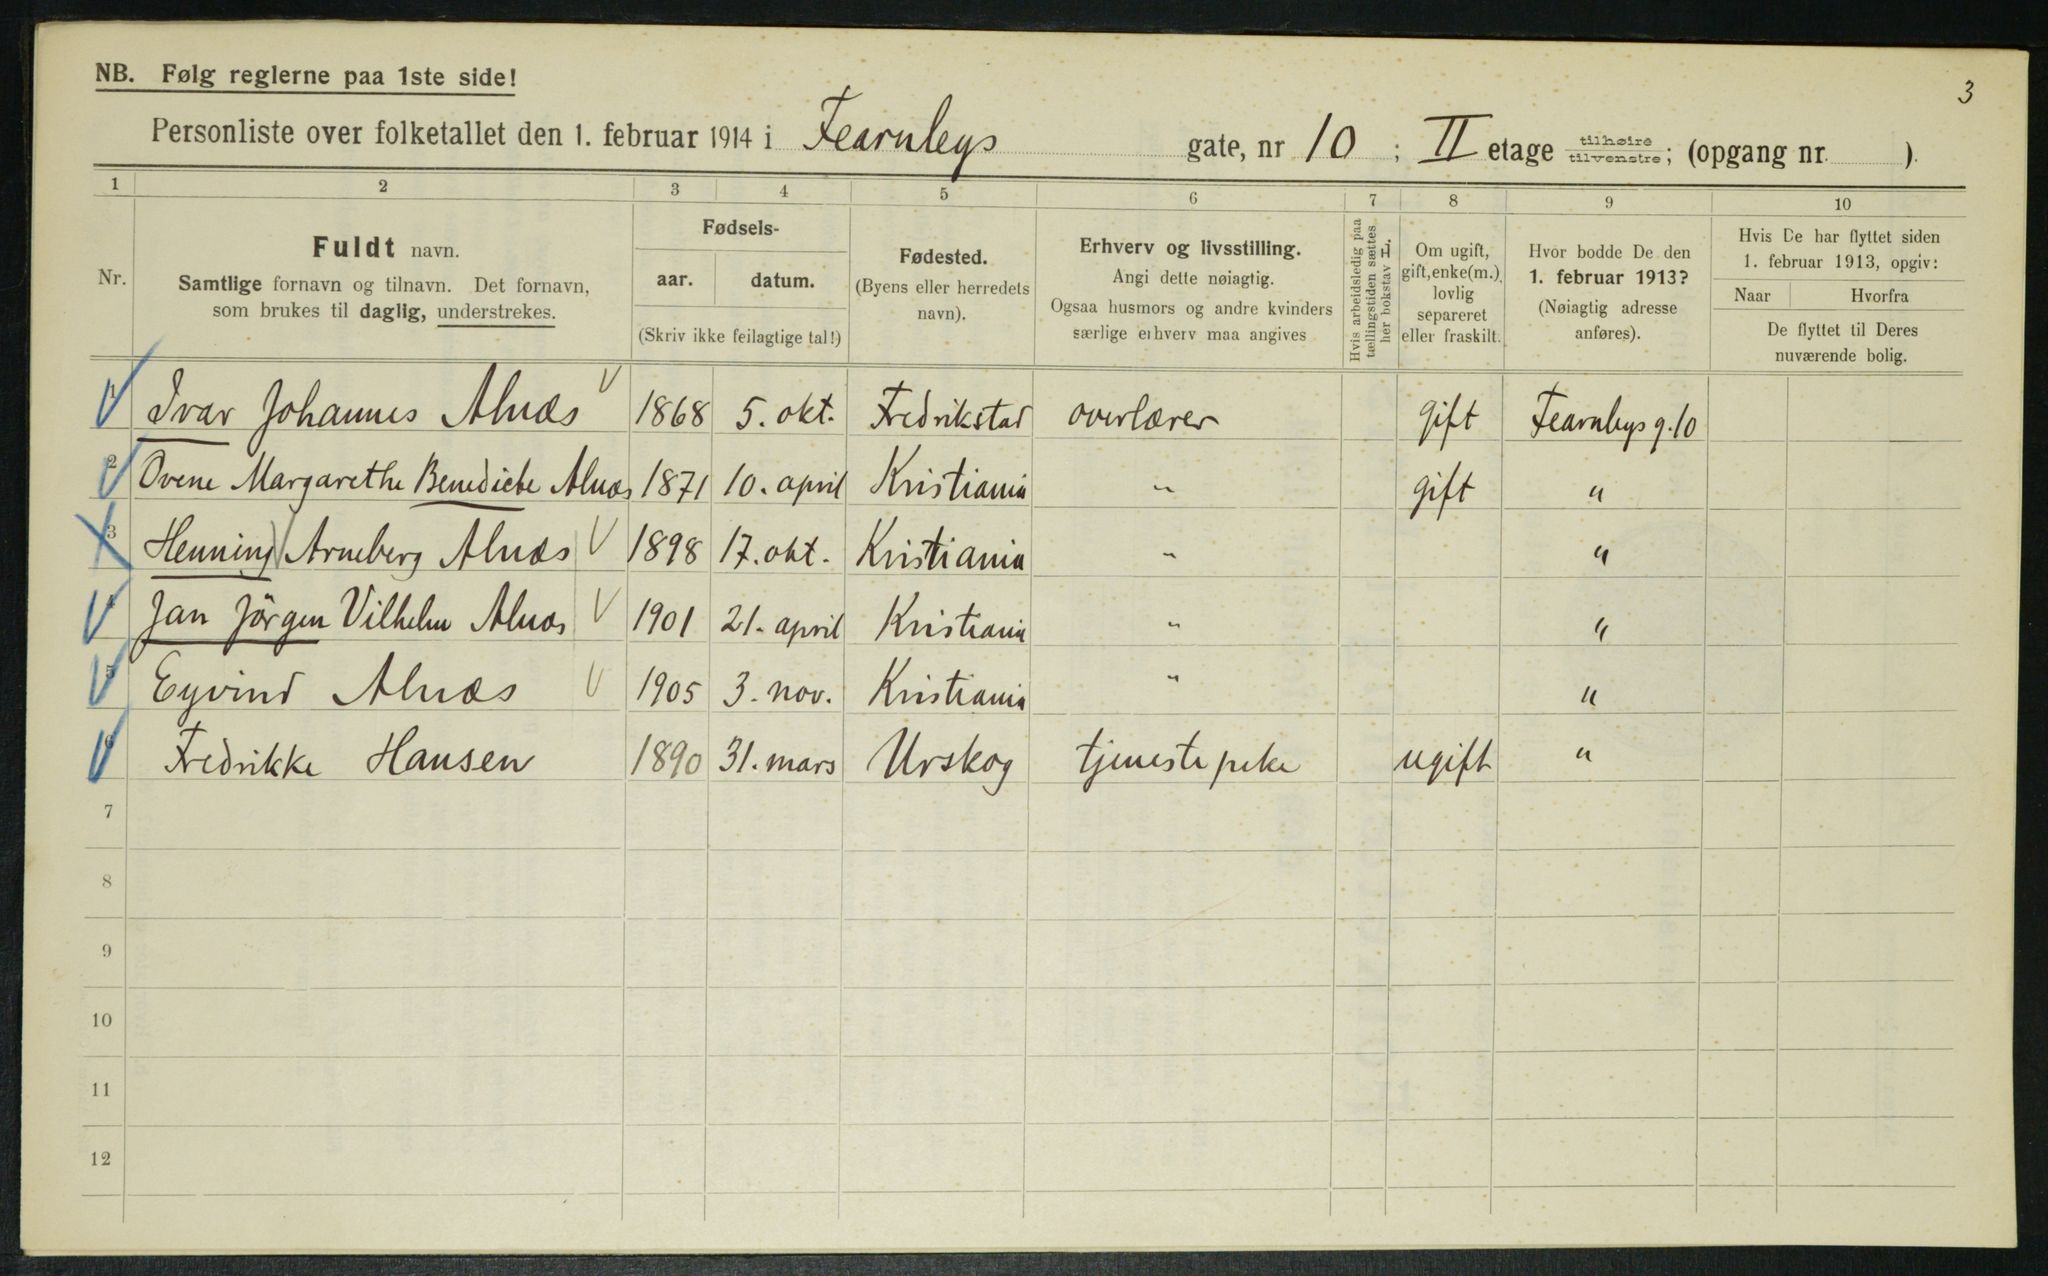 NB. Følg reglerne paa 1ste side!
3
Personliste over folketallet den 1. februar 1914 i Fearnleys gate, nr 10 ; II etage tilhøire tilvenstre; (opgang nr. ).
1 2 3 4 5 6 7 8 9 10
Nr.
Fuldt navn.
Samtlige fornavn og tilnavn. Det fornavn,
som brukes til daglig, understrekes.
Fødsels-
aar. datum.
(Skriv ikke feilagtige tal!)
Fødested.
(Byens eller herredets
navn).
Erhverv og livsstilling.
Angi dette nøiagtig.
Ogsaa husmors og andre kvinders
særlige erhverv maa angives
Hvis arbeidsledig paa
tællingstiden sættes
her bokstav L.
Om ugift,
gift, enke(m.),
lovlig
separeret
eller fraskilt.
Hvor bodde De den
1. februar 1913?
(Nøiagtig adresse
anføres).
Hvis De har flyttet siden
1. februar 1913, opgiv:
Naar Hvorfra
De flyttet til Deres
nuværende bolig.
1 Ivar Johannes Alnæs 1868 5. okt. Fredrikstad overlærer gift Fearnleys g. 10
2 Ovene Margarethe Benedicte Alnæs 1871 10. april Kristiania " gift "
3 Henning Arneberg Alnæs 1898 17. okt. Kristiania " "
4 Jan Jörgen Vilhelm Alnæs 1901 21. april Kristiania " "
5 Eyvind Alnæs 1905 3. nov. Kristiania " "
6 Fredrikke Hansen 1890 31. mars Urskog tjenestepike ugift "
7
8
9
10
11
12